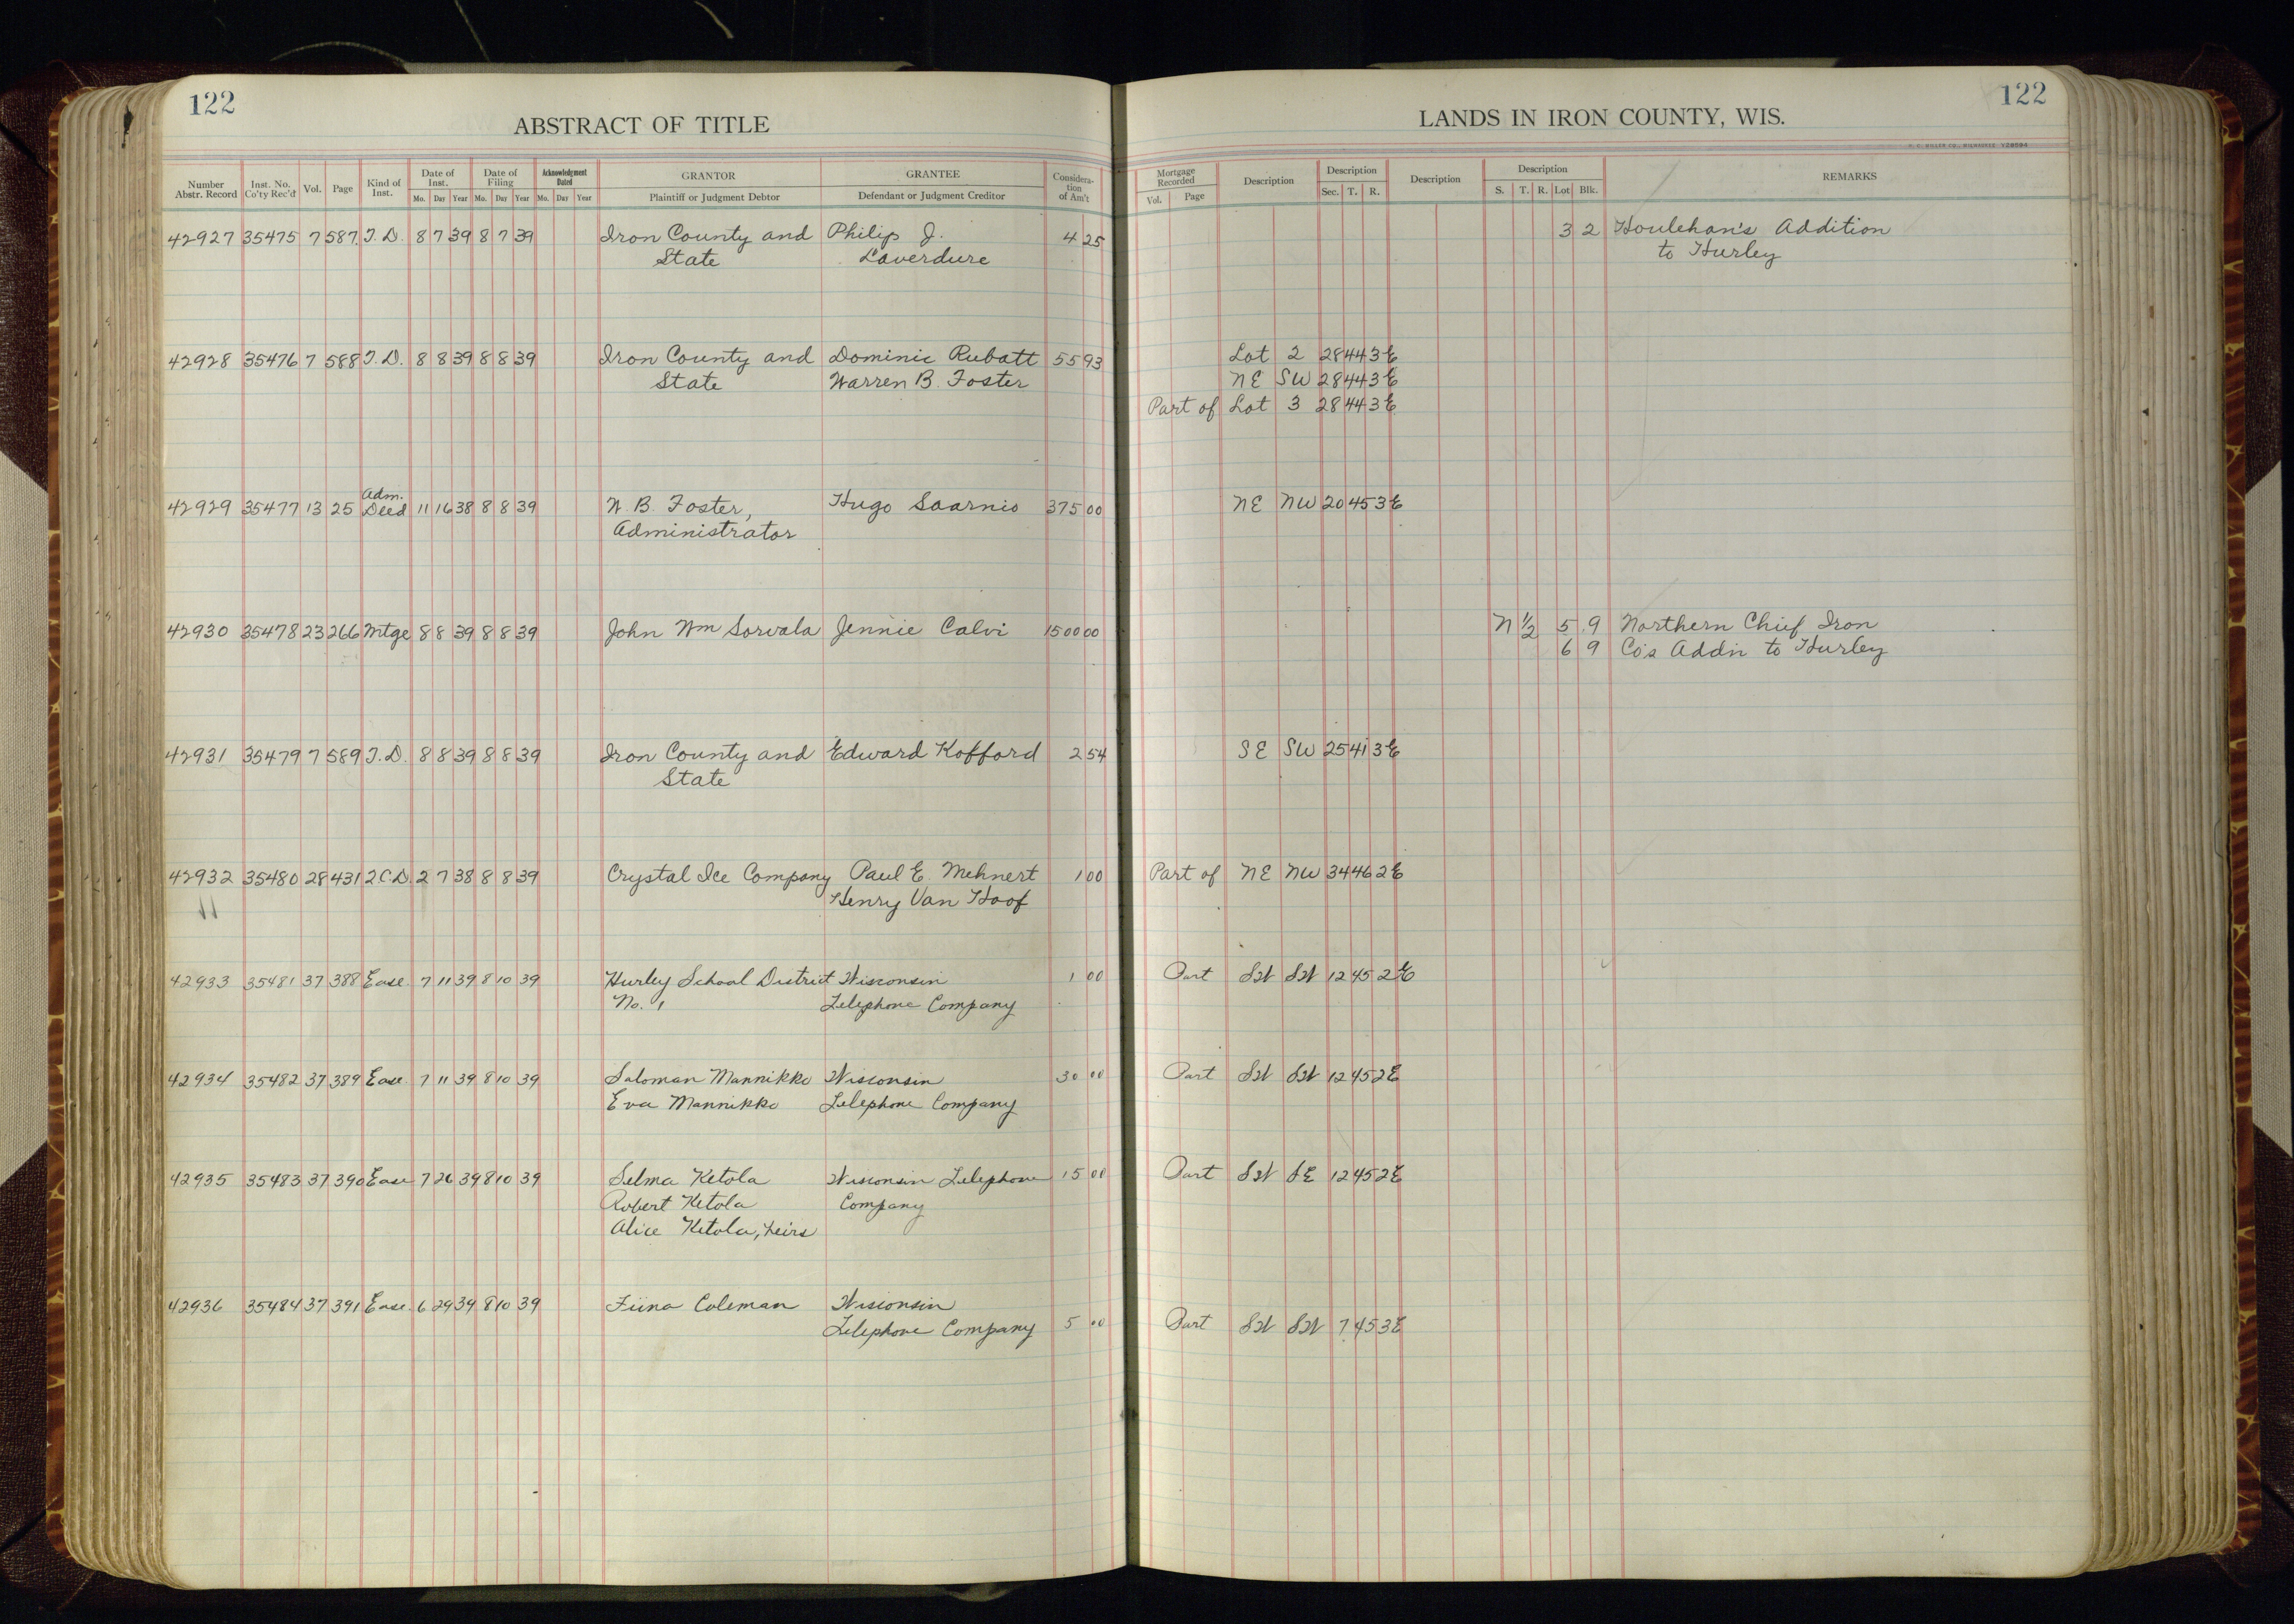 122
ABSTRACT OF TITLE
Number Abstr. Record | Inst. No. Co'ty Rec'd | Vol. | Page | Kind of Inst. | Date of Inst. Mo. Day Year | Date of Filing Mo. Day Year | Acknowledgment Dated Mo. Day Year | GRANTOR Plaintiff or Judgment Debtor | GRANTEE Defendant or Judgment Creditor | Considera-tion of Am't
42927 35475 7 587 T.D. 8 7 39 8 7 39 Iron County and Philip J. 4 25
State Laverdure
42928 35476 7 588 T.D. 8 8 39 8 8 39 Iron County and Dominic Rubatt 55 93
State Warren B. Foster
Adm.
42929 35477 13 25 Deed 11 16 38 8 8 39 W. B. Foster, Hugo Saarnio 375 00
Administrator
42930 35478 23 266 Mtge 8 8 39 8 8 39 John Wm Sorvala Jennie Calvi 1500 00
42931 35479 7 589 T.D. 8 8 39 8 8 39 Iron County and Edward Kofford 2 54
State
42932 35480 28 431 2C.D. 2 7 38 8 8 39 Crystal Ice Company Paul E. Mehnert 1 00
Henry Van Hoof
42933 35481 37 388 Ease. 7 11 39 8 10 39 Hurley School District Wisconsin 1 00
No. 1 Telephone Company
42934 35482 37 389 Ease 7 11 39 8 10 39 Saloman Mannikko Wisconsin 30 00
Eva Mannikko Telephone Company
42935 35483 37 390 Ease 7 26 39 8 10 39 Selma Ketola Wisconsin Telephone 15 00
Robert Ketola Company
Alice Ketola, heirs
42936 35484 37 391 Ease. 6 29 39 8 10 39 Fiina Coleman Wisconsin
Telephone Company 5 00
122
LANDS IN IRON COUNTY, WIS.
Mortgage Recorded Vol. Page | Description | Description Sec. T. R. | Description | Description S. T. R. Lot Blk. | REMARKS
3 2 Houlehan's Addition
to Hurley
Lot 2 28 44 3E
NE SW 28 44 3E
Part of Lot 3 28 44 3E
NE NW 20 45 3E
N 1/2 5 9 Northern Chief Iron
6 9 Co's Addn to Hurley
SE SW 25 41 3E
Part of NE NW 34 46 2E
Part SW SW 12 45 2E
Part SW SW 12 45 2E
Part SW SE 12 45 2E
Part SW SW 7 45 3E